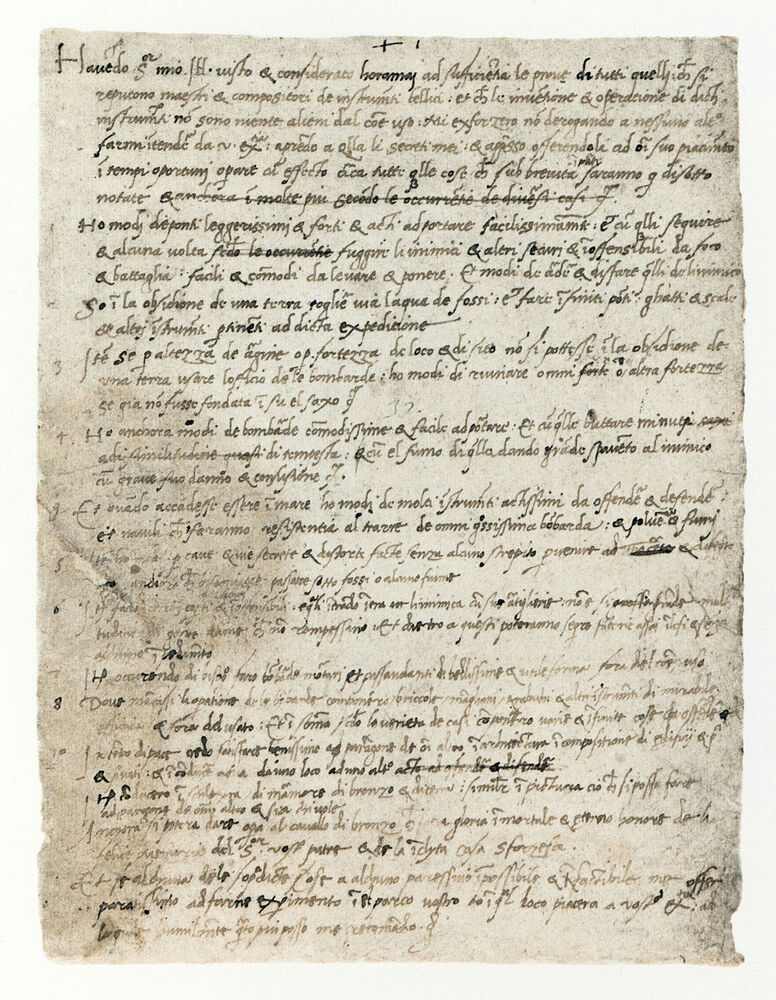 Havēdo Sor mio Ill. visto & considerato horamai ad sufficiētia le prove di tutti quelli ch si
reputono maestri & compositori de instrumēti bellici: et ch le invētione & operatione di dicti
instrumēti nō sono niente alieni dal cōe uso: Mi exforzero nō derogando a nessuno altro
farmi intendē da v. exa: aprēdo a qlla li secreti mei: & appsso offerendoli ad oī suo piacimēto
i tempi oportuni operare cū effecto circa tutte qlle cose ch sub brevità saranno q disotto
notate & anchora i molte più secōdo le occurrentie de diversi casi
Ho modi de ponti leggerissimi & forti & acti ad portare facilissimamēte: et cū qlli seguire
& alcuna volta secōdo le occurrentie fuggire li inimici & altri securi & ioffensibili da foco
& battaglia: facili & cōmodi da levare & ponere. Et modi de ardē & disfare qlli de linimico
So ī la obsidione de una terra toglier via laqua de fossi: et fare īfiniti pōti ghatti & scale
& altri istrumēti ptinenti ad dicta expeditione
3 Itē se p altezza de argine o p fortezza de loco & di sito nō si potesse ī la obsidione de
una terra usare lofficio de le bombarde: ho modi di ruinare omni forte o altra fortezza
se già nō fusse fondata ī su el saxo
32
4 Ho anchora modi de bombarde cōmodissime & facile ad portare: Et cū qlle buttare minuti saxi
ad similitudine di tempesta: & cū el fumo di qlla dando grāde spavēto al inimico
cū grave suo danno & cōfusione
9 Et quādo accadesse essere ī mare ho modi de molti istrumēti actissimi da offendē & defendē:
et navili ch faranno resistentia al trarre de omni grossissima bōbarda: & polver & fumi
5 Itē ho modi p cave & vie secrete & distorte facte senza alcuno strepito p venire ad &
anchora ch bisognasse passare sotto fossi o alcuno fiume
6 Itē farò carri coperti & ioffensibili: e qli ītrādo ītra li inimica cū sue artiglierie: nō è sì grossa
ch nō rompessino: Et dietro a questi poterāno
7 Itē occorrendo di bisogno farò bōbarde mortari et passavolanti di bellissime & utile forme fora del cōe uso
8 Dove mācassi la opatione de le bōbarde cōponerò briccole māghani trabuchi & altri istrumēti di mirabile
efficacia & fora del usato: Et ī sōma secōdo la varietà de casi cōponerò varie & īfinite cose da offendē &
10 In tēpo di pace credo satisfare benissimo ad paragone de oī altro ī architectura ī compositione di edificij &
& privati: & ī cōducē aqua da uno loco ad uno altro acto ad offendē & difendē
Itē cōducerò ī sculptura di marmore di bronzo & di terra: similē ī pictura ciò ch si possa fare
ad paragone de oī altro & sia chi vole
Anchora si poterà dare opa al cavallo di bronzo ch sarà gloria īmortale & eterno honore de la
felice memoria del Sor vostro patre & de la īclyta casa Sforzesca.
Et se alchuna de le sopra dicte cose a alchuno paressino īpossibile & infactibile me offero
paratissimo ad farne expimento ī el parco vostro o ī qual loco piacerà a vostra exa: ad
la quale humilmente qto più posso me recomādo